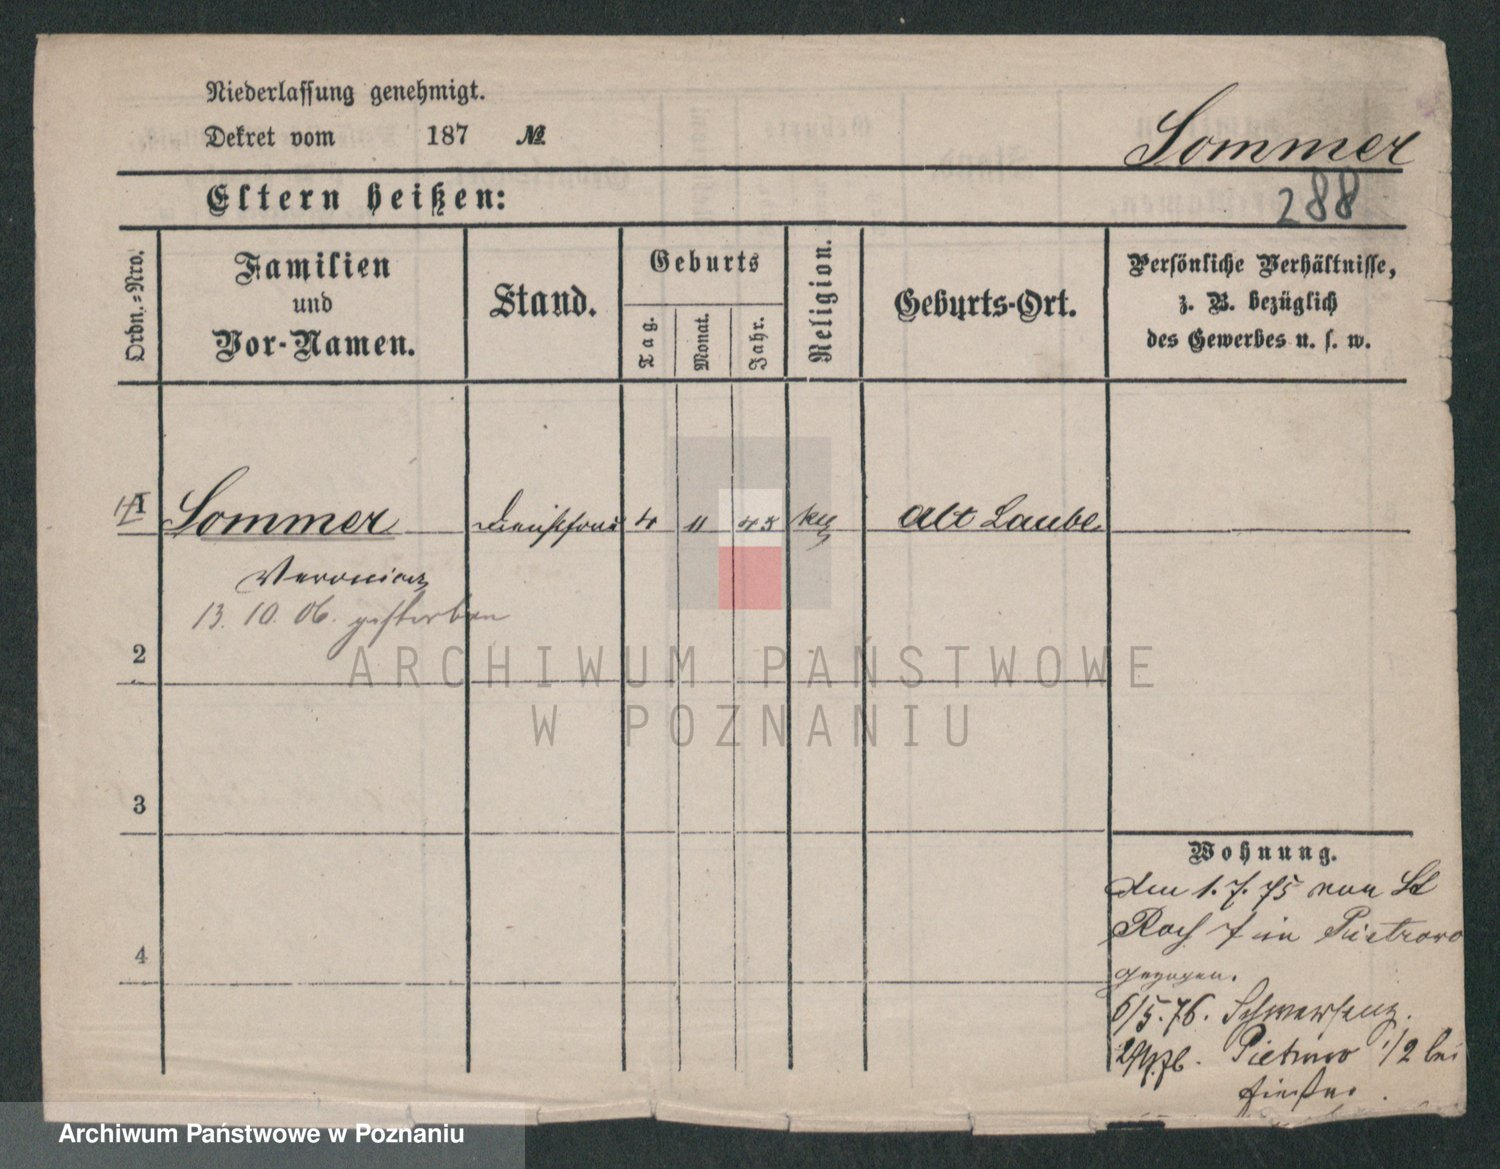 Niederlassung genehmigt.
Dekret vom 187 №
Sommer
Eltern heißen:
288
Ordn.=Nro.
Familien
und
Vor-Namen.
Stand.
Geburts
Tag.
Monat.
Jahr.
Religion.
Geburts-Ort.
Persönliche Verhältnisse,
z. B. bezüglich
des Gewerbes u. s. w.
1 Sommer 4 11 45 Alt Laube
Veronica
13. 10. 06. gestorben
2
ARCHIWUM PAŃSTWOWE
W POZNANIU
3
Wohnung.
Am 1. 7. 75 von St
Roch 7 in Pietrowo
gezogen.
6/5. 76. Schwersenz.
Pietrowo 1/2 bei
4
Archiwum Państwowe w Poznaniu